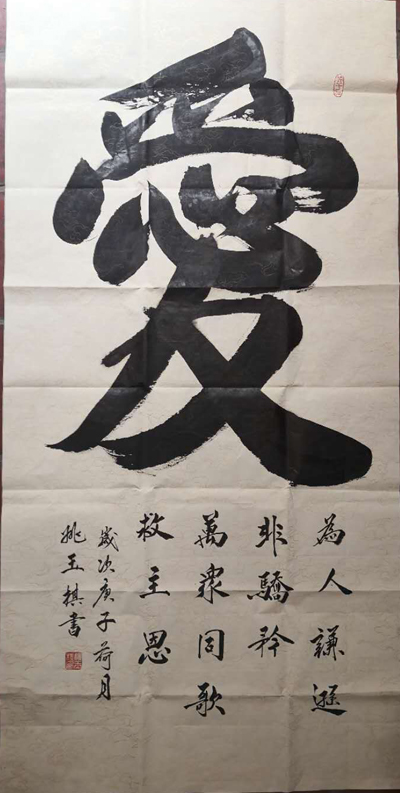 愛
為人謙遜
非驕矜
萬衆同歌
救主恩
歲次庚子荷月
姚玉棋書